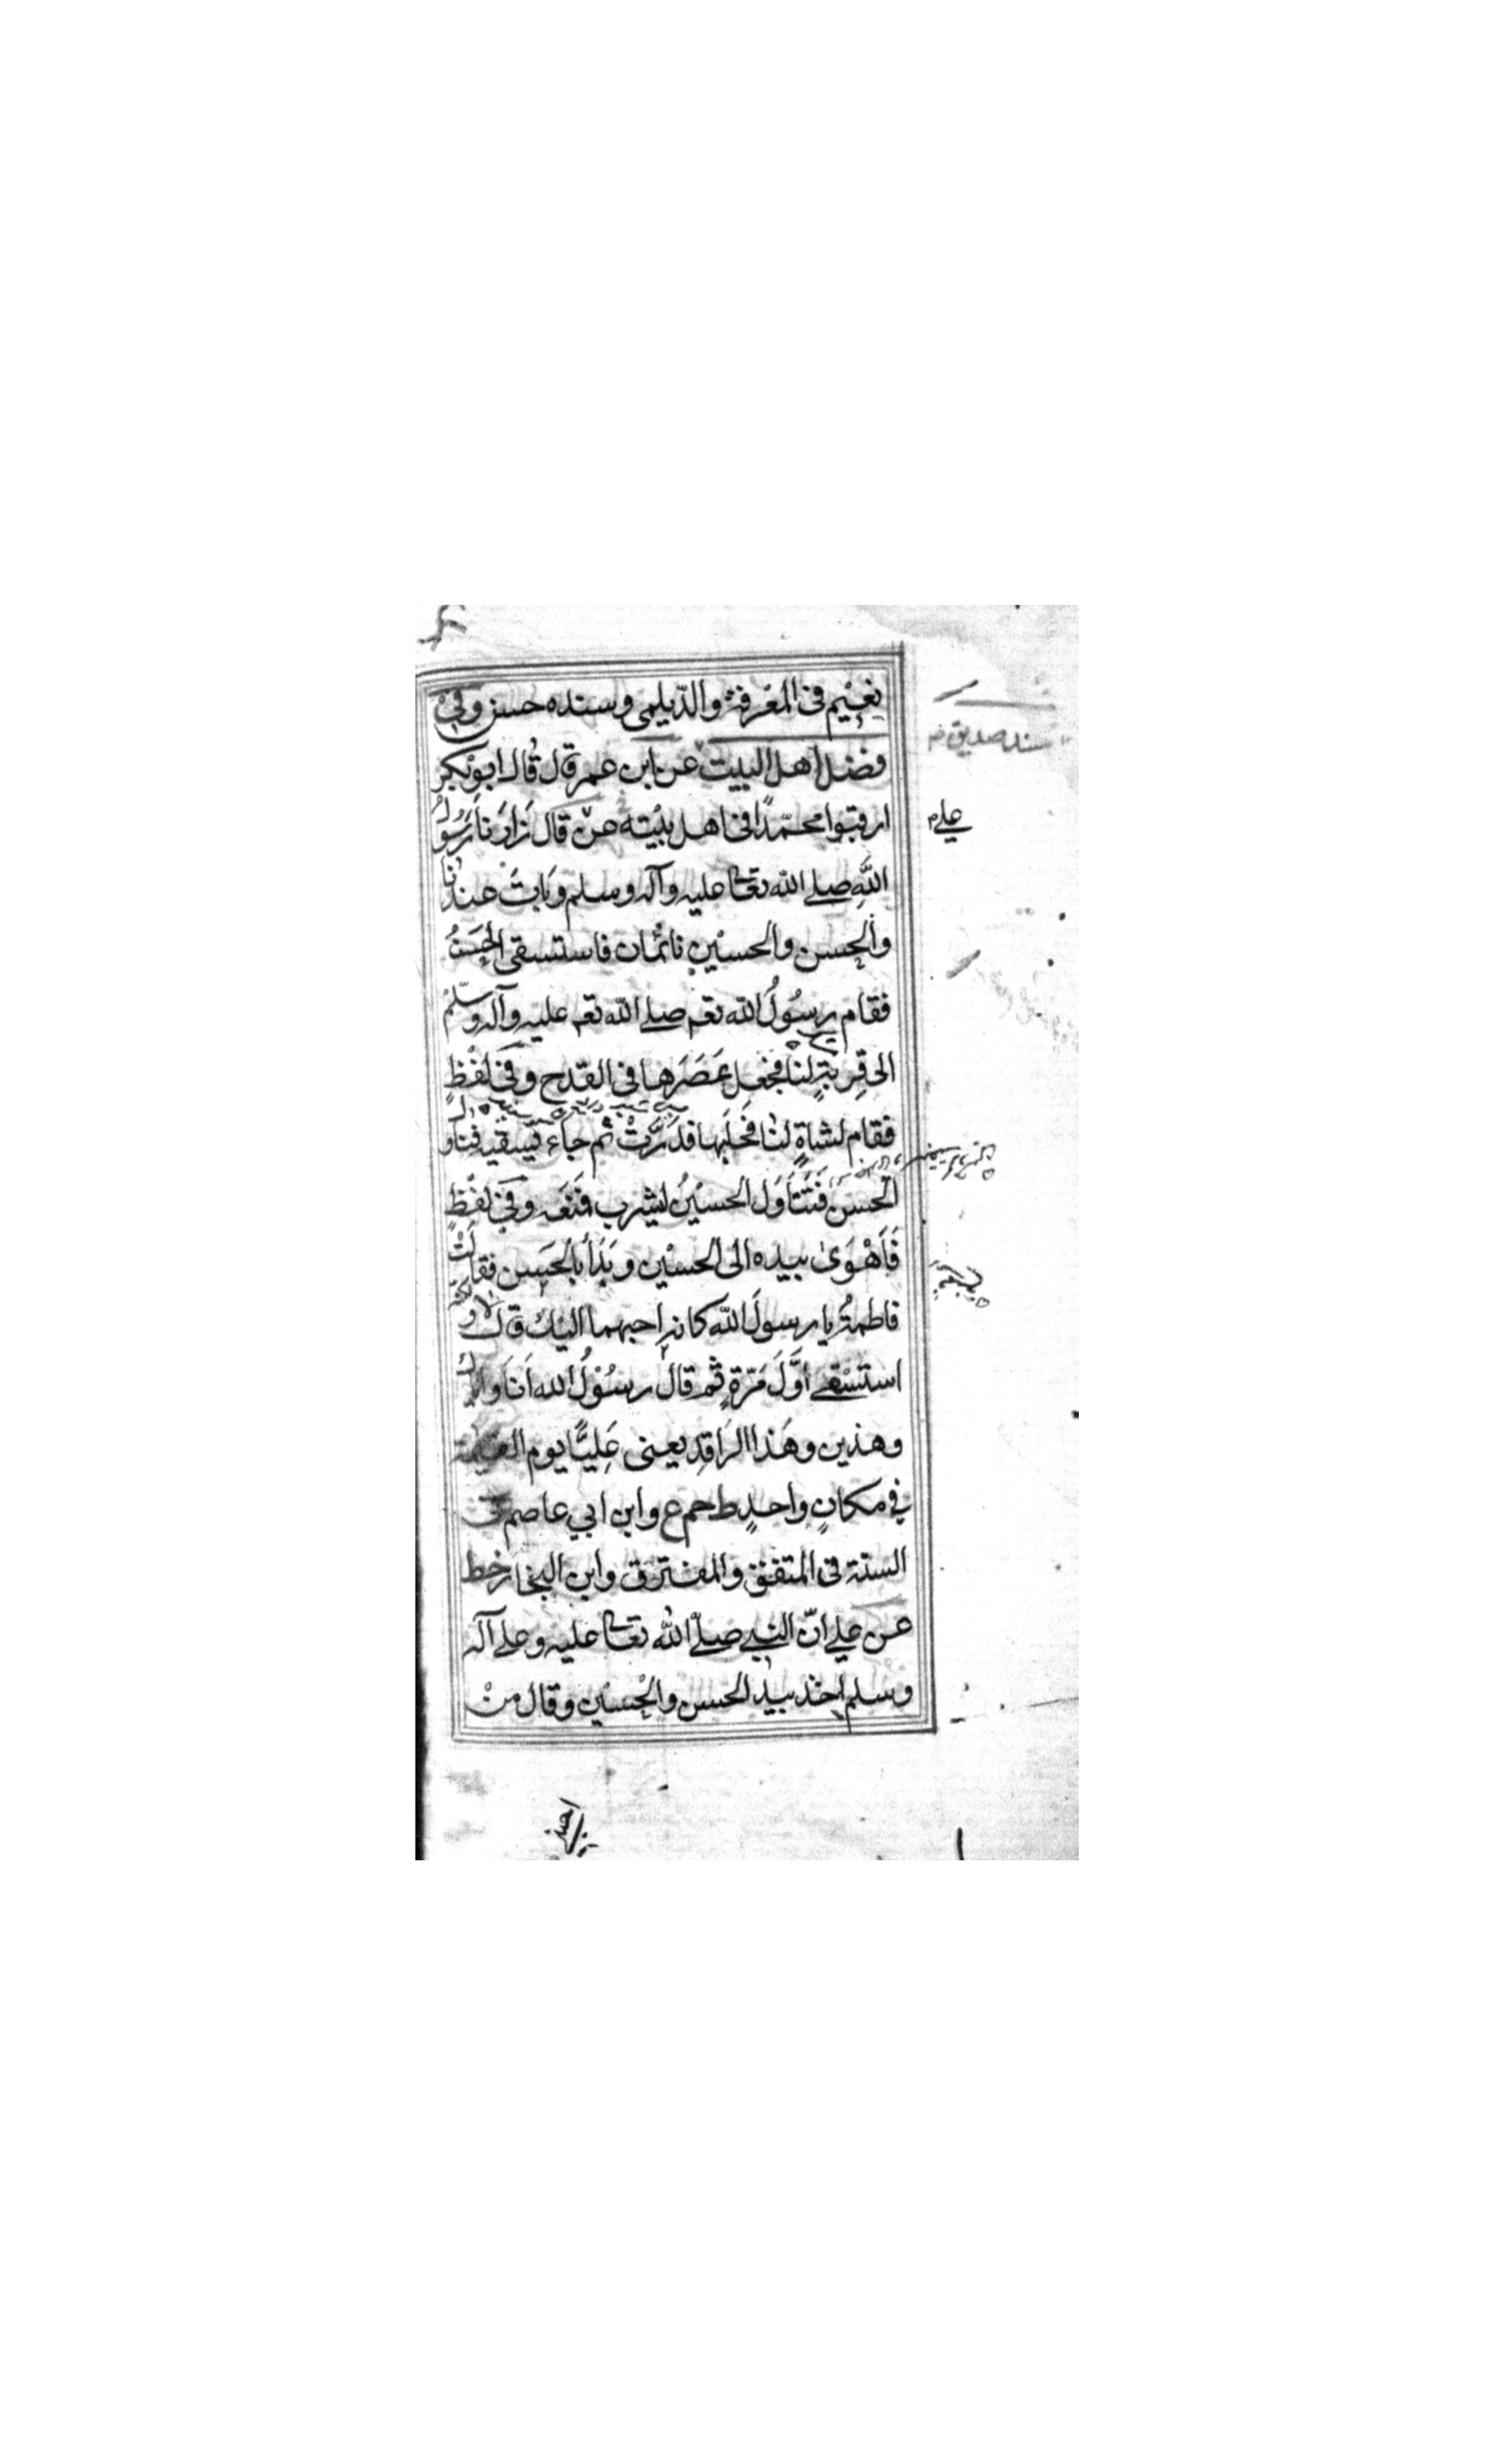 نعيم فى المعرفة والديلمى وسنده حسن وفى
فضل اهل البيت عن ابن عمر قال قال ابو بكر
ارقبوا محمّدًا فى اهل بيته عن قال زَارَنا رَسُولُ
اللهِ صلے الله تعا عليه وآله وسلم وبَاتَ عندنا
والحسن والحسين نائمان فاستسقى الحَسَنُ
فقام رسُولُ الله تعم صلے الله تعم عليه وآله وسلم
الى قِربَةٍ لنا فجعل عَصَرَها فى القدح وفى لفظٍ
فقام لشاةٍ لنا فحَلَبها فدَرَّتْ ثم جاء يَسقيه فناول
الحسَنَ فَتَنَاوَل الحسَيْنُ ليشرب فمَنَعَه وفى لفظٍ
فَاَهْوَىٰ بيده الى الحسَيْن وبَدَأ بالحَسن فقالَتْ
فاطمةُ يا رسولَ الله كانه احبهما اليك قال لا ولكنه
استسقے اَوَّلَ مَرّةٍ ثم قال رسُوْلُ الله اَنَا واياك
وهذين وهَذا الرَاقِد يعنى عَلِيًّا يوم القيمة
في مكانٍ واحدٍ ط حم ع وابن ابي عاصم فى
السنة فى المتفق والمفترق وابن النجار خط
عن علے انّ النبے صلّے الله تعا عليه وعلے آله
وسلم اخذ بيد الحسن والحسين وقال منْ
مسند صديق رض
علے م